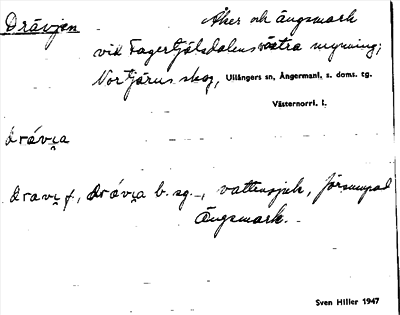 Drävjen Åker och ängsmark
vid Fagertjälsdalens västra mynning;
Nortjärns skog, Ullångers sn, Ångermanl. s. doms. tg.
Västernorrl. l.
drávi̯a
dravi̯ f, drávi̯a b. sg. –, vattensjuk, försumpad
Ängsmark. –
Sven Hiller 1947